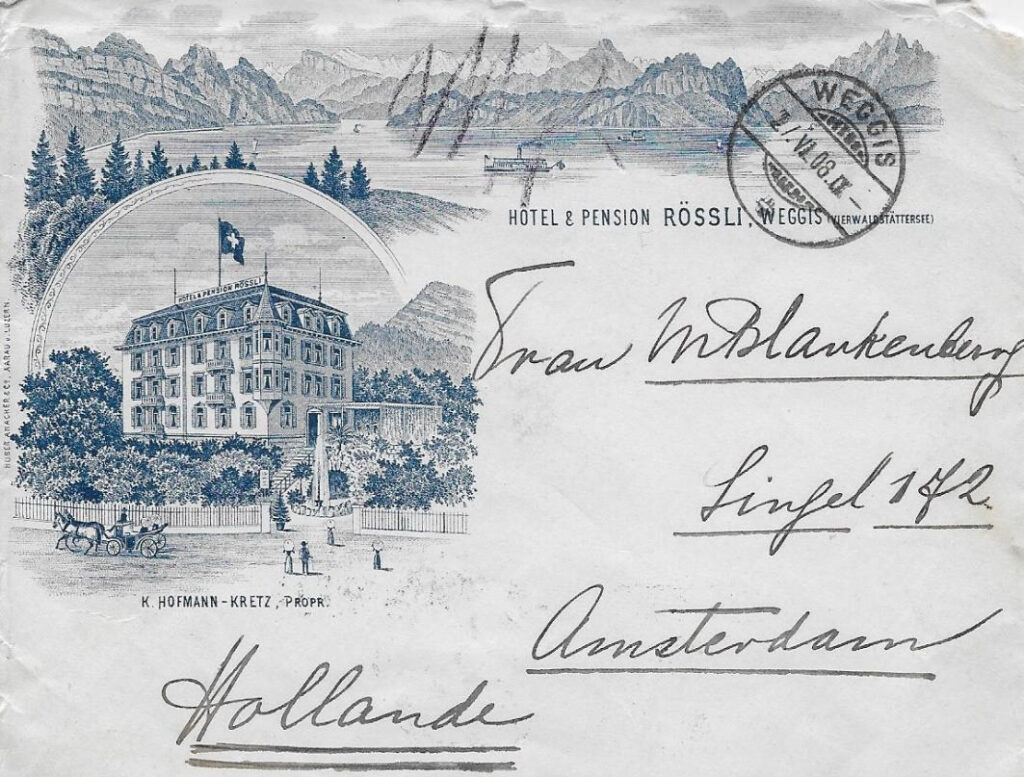 HÔTEL & PENSION RÖSSLI, WEGGIS (VIERWALDSTÄTTERSEE)
WEGGIS
HÔTEL & PENSION RÖSSLI
HUBER, ANACKER & Cº, AARAU u. LUZERN.
K. HOFMANN-KRETZ, PROPR.
Frau M Blankenberg
Singel 172.
Amsterdam
Hollande